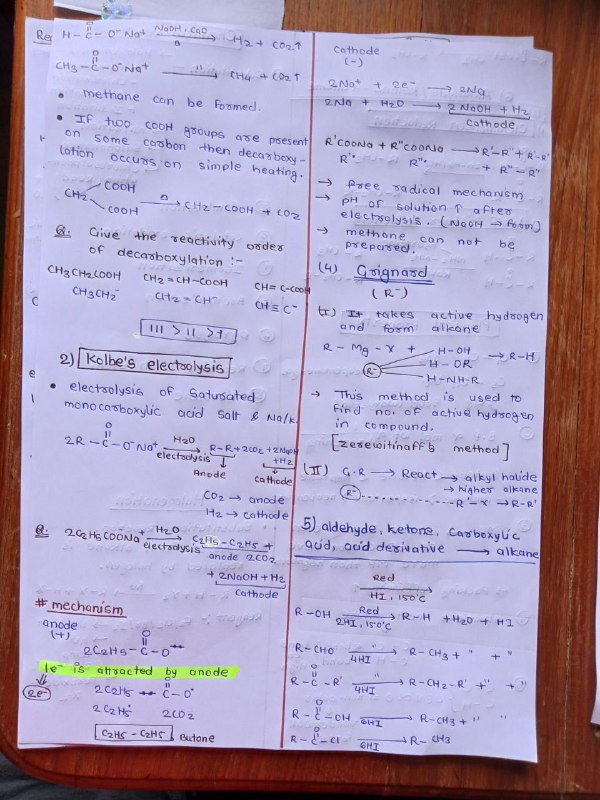 H-C-O⁻Na⁺ NaOH, CaO Δ → H2 + CO2↑
O
CH3-C-O⁻Na⁺ " → CH4 + CO2↑
O
• methane can be formed.
• If two COOH groups are present
on some carbon then decarboxy-
lation occurs on simple heating.
CH2 COOH COOH Δ → CH2-COOH + CO2
Q. Give the reactivity order
of decarboxylation :-
CH3CH2COOH CH2=CH-COOH CH≡C-COOH
CH3CH2⁻ CH2=CH⁻ CH≡C⁻
III > II > I
2) Kolbe's electrolysis
• electrolysis of Saturated
monocarboxylic acid salt & Na/K.
O
2R-C-O⁻Na⁺ H2O electrolysis → R-R + 2CO2 + 2NaOH + H2
Anode cathode
CO2 → anode
H2 → cathode
Q. 2C2H5COONa H2O electrolysis → C2H5-C2H5 +
anode 2CO2
+ 2NaOH + H2
Cathode
# mechanism
anode
(+)
O
2C2H5-C-O
1e⁻ is attracted by anode
2e⁻
O
2C2H5 C-O•
2C2H5• 2CO2
C2H5-C2H5, Butane
cathode
(-)
2Na⁺ + 2e⁻ → 2Na
2Na + H2O → 2NaOH + H2
cathode
R'COONa + R"COONa → R'-R" + R'-R'
R'• R"• + R"-R"
→ free radical mechanism
→ pH of solution ↑ after
electrolysis. (NaOH → form)
→ methane can not be
prepared.
(4) Grignard
(R⁻)
(I) It takes active hydrogen
and form alkane
R-Mg-X + H-OH → R-H
R⁻ H-OR
H-NH-R
→ This method is used to
find no. of active hydrogen
in compound.
[Zerewitinaff's method]
(II) G.R → React → alkyl halide
→ higher alkane
R⁻ R'-X → R-R'
5) aldehyde, ketone, Carboxylic
acid, acid derivative → alkane
Red
HI, 150°C
R-OH Red 2HI, 150°C → R-H + H2O + HI
R-CHO " 4HI → R-CH3 + " + "
R-C-R' " 4HI → R-CH2-R' + " + "
O
O
R-C-OH 6HI → R-CH3 + " "
O
R-C-Cl 6HI → R-CH3